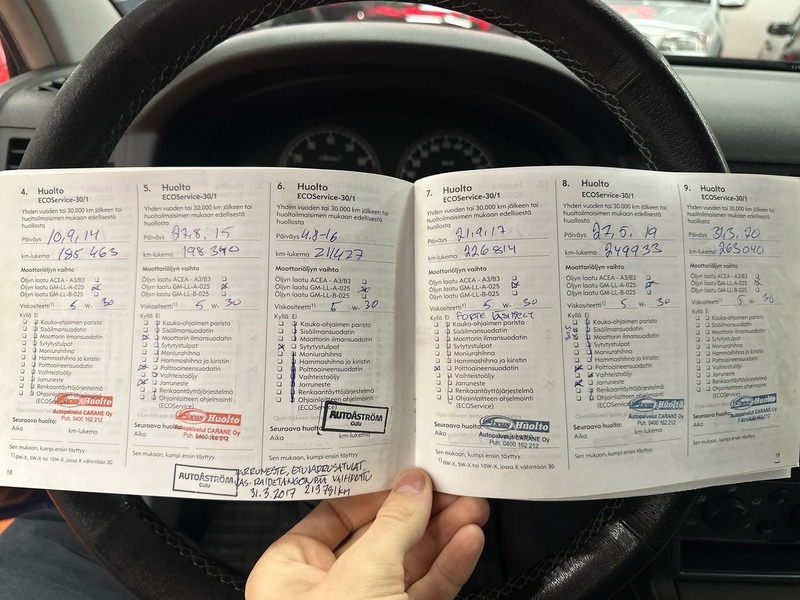 4. Huolto
ECOService-30/1
Yhden vuoden tai 30.000 km jälkeen tai
huoltoilmaisimen mukaan edellisestä
huollosta
Päiväys 10,9,14
km-lukema 185 463
Moottoriöljyn vaihto
Öljyn laatu ACEA - A3/B3
Öljyn laatu GM-LL-A-025
Öljyn laatu GM-LL-B-025
Viskositeetti 1) 5 w- 30
Kyllä Ei
Kauko-ohjaimen paristo
Sisäilmansuodatin
Moottorin ilmansuodatin
Sytytystulpat
Moniurahihna
Hammashihna ja kiristin
Polttoaineensuodatin
Vaihteistoöljy
Jarruneste
Renkaantäyttöjärjestelmä
Ohjainlaitteen ohjelmointi
(ECOService)
Huolto
Autopalvelut CARANE Oy
Puh. 0400 162 212
Seuraava huolto:
Aika km-lukema
Sen mukaan, kumpi ensin täyttyy.
1) 0W-X, 5W-X tai 10W-X, jossa X vähintään 30
18
5. Huolto
ECOService-30/1
Yhden vuoden tai 30.000 km jälkeen tai
huoltoilmaisimen mukaan edellisestä
huollosta
Päiväys 27,8, 15
km-lukema 198 340
Moottoriöljyn vaihto
Öljyn laatu ACEA - A3/B3
Öljyn laatu GM-LL-A-025
Öljyn laatu GM-LL-B-025
Viskositeetti 1) 5 w- 30
Kyllä Ei
Kauko-ohjaimen paristo
Sisäilmansuodatin
Moottorin ilmansuodatin
Sytytystulpat
Moniurahihna
Hammashihna ja kiristin
Polttoaineensuodatin
Vaihteistoöljy
Jarruneste
Renkaantäyttöjärjestelmä
Ohjainlaitteen ohjelmointi
(ECOService)
Huolto
Autopalvelut CARANE Oy
Puh. 0400 162 212
Seuraava huolto:
Aika km-lukema
Sen mukaan, kumpi ensin täyttyy.
AUTOÅSTRÖM
Oulu
JARRUNESTE, ETUJARRUSATULAT,
VAS. RAIDETANGONPÄÄ VAIHDETTU
31.3.2017 219 751 KM
6. Huolto
ECOService-30/1
Yhden vuoden tai 30.000 km jälkeen tai
huoltoilmaisimen mukaan edellisestä
huollosta
Päiväys 4.8-16
km-lukema 211427
Moottoriöljyn vaihto
Öljyn laatu ACEA - A3/B3
Öljyn laatu GM-LL-A-025
Öljyn laatu GM-LL-B-025
Viskositeetti 1) 5 w- 30
Kyllä Ei
Kauko-ohjaimen paristo
Sisäilmansuodatin
Moottorin ilmansuodatin
Sytytystulpat
Moniurahihna
Hammashihna ja kiristin
Polttoaineensuodatin
Vaihteistoöljy
Jarruneste
Renkaantäyttöjärjestelmä
Ohjainlaitteen ohjelmointi
(ECOService)
AUTOÅSTRÖM
Oulu
Seuraava huolto:
Aika km-lukema
Sen mukaan, kumpi ensin täyttyy.
7. Huolto
ECOService-30/1
Yhden vuoden tai 30.000 km jälkeen tai
huoltoilmaisimen mukaan edellisestä
huollosta
Päiväys 21,9,17
km-lukema 226814
Moottoriöljyn vaihto
Öljyn laatu ACEA - A3/B3
Öljyn laatu GM-LL-A-025
Öljyn laatu GM-LL-B-025
Viskositeetti 1) 5 w- 30
Kyllä Ei FORTE
Kauko-ohjaimen paristo
Sisäilmansuodatin
Moottorin ilmansuodatin
Sytytystulpat
Moniurahihna
Hammashihna ja kiristin
Polttoaineensuodatin
Vaihteistoöljy
Jarruneste
Renkaantäyttöjärjestelmä
Ohjainlaitteen ohjelmointi
(ECOService)
Huolto
Autopalvelut CARANE Oy
Puh. 0400 162 212
Seuraava huolto:
Aika
Sen mukaan, kumpi ensin täyttyy.
1) 0W-X, 5W-X tai 10W-X, jossa X vähintään 30
8. Huolto
ECOService-30/1
Yhden vuoden tai 30.000 km jälkeen tai
huoltoilmaisimen mukaan edellisestä
huollosta
Päiväys 27, 5, 19
km-lukema 249933
Moottoriöljyn vaihto
Öljyn laatu ACEA - A3/B3
Öljyn laatu GM-LL-A-025
Öljyn laatu GM-LL-B-025
Viskositeetti 1) 5 w- 30
Kyllä Ei
Kauko-ohjaimen paristo
Sisäilmansuodatin
Moottorin ilmansuodatin
Sytytystulpat
Moniurahihna
Hammashihna ja kiristin
Polttoaineensuodatin
Vaihteistoöljy
Jarruneste
Renkaantäyttöjärjestelmä
Ohjainlaitteen ohjelmointi
(ECOService)
Huolto
Autopalvelut CARANE Oy
Puh. 0400 162 212
Seuraava huolto:
Aika km-lukema
Sen mukaan, kumpi ensin täyttyy.
9. Huolto
ECOService-30/1
Yhden vuoden tai 30.000 km jälkeen tai
huoltoilmaisimen mukaan edellisestä
huollosta
Päiväys 31,3, 20
km-lukema 265040
Moottoriöljyn vaihto
Öljyn laatu ACEA - A3/B3
Öljyn laatu GM-LL-A-025
Öljyn laatu GM-LL-B-025
Viskositeetti 1) 5 w- 30
Kyllä Ei
Kauko-ohjaimen paristo
Sisäilmansuodatin
Moottorin ilmansuodatin
Sytytystulpat
Moniurahihna
Hammashihna ja kiristin
Polttoaineensuodatin
Vaihteistoöljy
Jarruneste
Renkaantäyttöjärjestelmä
Ohjainlaitteen ohjelmointi
(ECOService)
Huolto
Seuraava huolto:
Aika km-lukema
Sen mukaan, kumpi ensin täyttyy.